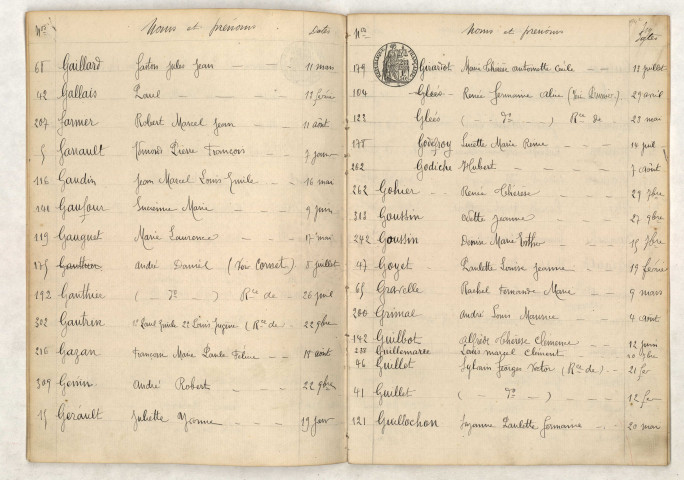 Nos Noms et prénoms Dates
68 Gaillard Gaston Jules Jean 11 mars
42 Gallais Paul 11 février
207 Garnier Robert Marcel Jean 11 août
5 Pierre François 7 janv
116 Gaudin Jean Marcel Louis Emile 16 mai
141 Gaufour Lucienne Marie 9 juin
119 Gauguet Marie Laurence 17 mai
175 Gauthier André Daniel (Voir Cornet) 8 juillet
192 Gauthier ( do ) Rce de 26 juil
302 Gautren 1o Paul Emile 2o Louis Eugène (Rce de 22 9bre
216 Gazan François Marie Paule Félicie 18 août
309 Genin André Robert 22 9bre
15 Gérault Juliette Yvonne 19 janv
Nos Noms et prénoms
179 Marie Thérèse Antoinette Cécile 11 juillet
104 Gleès Renée Germaine 29 avril
123 Gleès ( do ) Rce de 23 mai
178 Godefroy Lucette Marie Reine 14 juil
262 Godiche Hubert 7 août
262 Gohier Renée Thérèse 29 7bre
Goussin Odette Jeanne 27 9bre
242 Goussin Denise Marie 15 7bre
47 Goyet Paulette Louise Jeanne 19 février
65 Gravelle Rachel Fernande Marie 9 mars
200 Grimal André Louis Maurice 4 août
142 Guilbot Alfred Thérèse Clémence 12 juin
Guillemarre Louis Marcel Clément
46 Guillet Sylvain Georges Victor (Rce de) 21 fer
41 Guillet ( do ) 12 fer
121 Guillochon Suzanne Paulette Germaine 20 mai